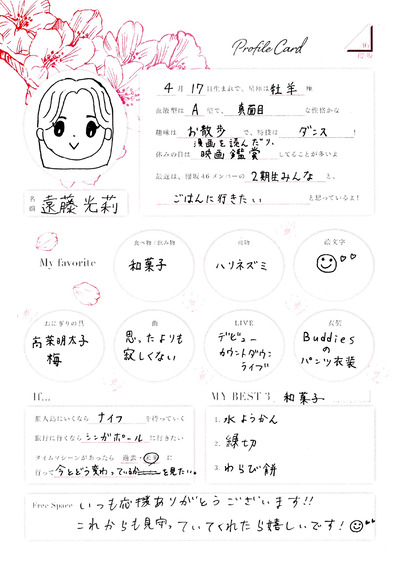 Profile Card
櫻坂
4月17日生まれで、星座は牡羊座
血液型はA型で、真面目な性格かな
趣味はお散歩で、特技はダンス！
漫画を読んだり、
休みの日は映画鑑賞してることが多いよ
最近は、櫻坂46メンバーの2期生みんなと、
ごはんに行きたいと思っているよ！
名前 遠藤光莉
My favorite
食べ物/飲み物
和菓子
動物
ハリネズミ
絵文字
おにぎりの具
高菜明太子
梅
曲
思ったよりも
寂しくない
LIVE
デビュー
カウントダウン
ライブ
衣装
Buddies
の
パンツ衣装
If...
無人島にいくならナイフを持っていく
旅行に行くならシンガポールに行きたい
タイムマシーンがあったら過去・未来に
行って今とどう変わっているかを見たい。
MY BEST 3 和菓子
1. 水ようかん
2. 練切
3. わらび餅
Free Space
いつも応援ありがとうございます!!
これからも見守っていてくれたら嬉しいです！